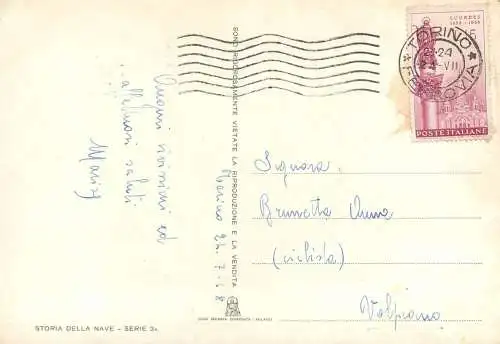 Auguri vivissimi ed
affettuosi saluti
Torino 24.7.58
SONO RIGOROSAMENTE VIETATE LA RIPRODUZIONE E LA VENDITA
STORIA DELLA NAVE - SERIE 3a
LOURDES
1858 - 1958
TORINO
FERROVIA
-24
-VII
POSTE ITALIANE
Signora
Brunetta Anna
(ciclista)
Volpiano